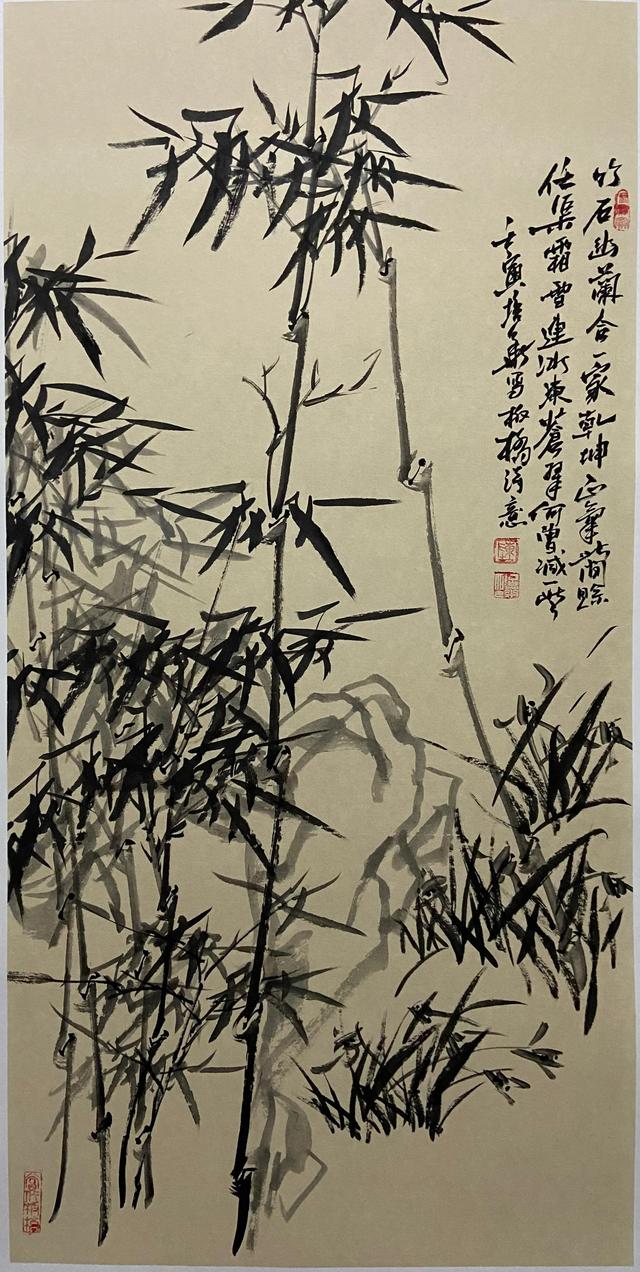 竹石幽蘭合一家乾坤正氣此間賒
任渠霜雪連冰凍蒼翠何曾減一些
壬寅培寫板橋詩意